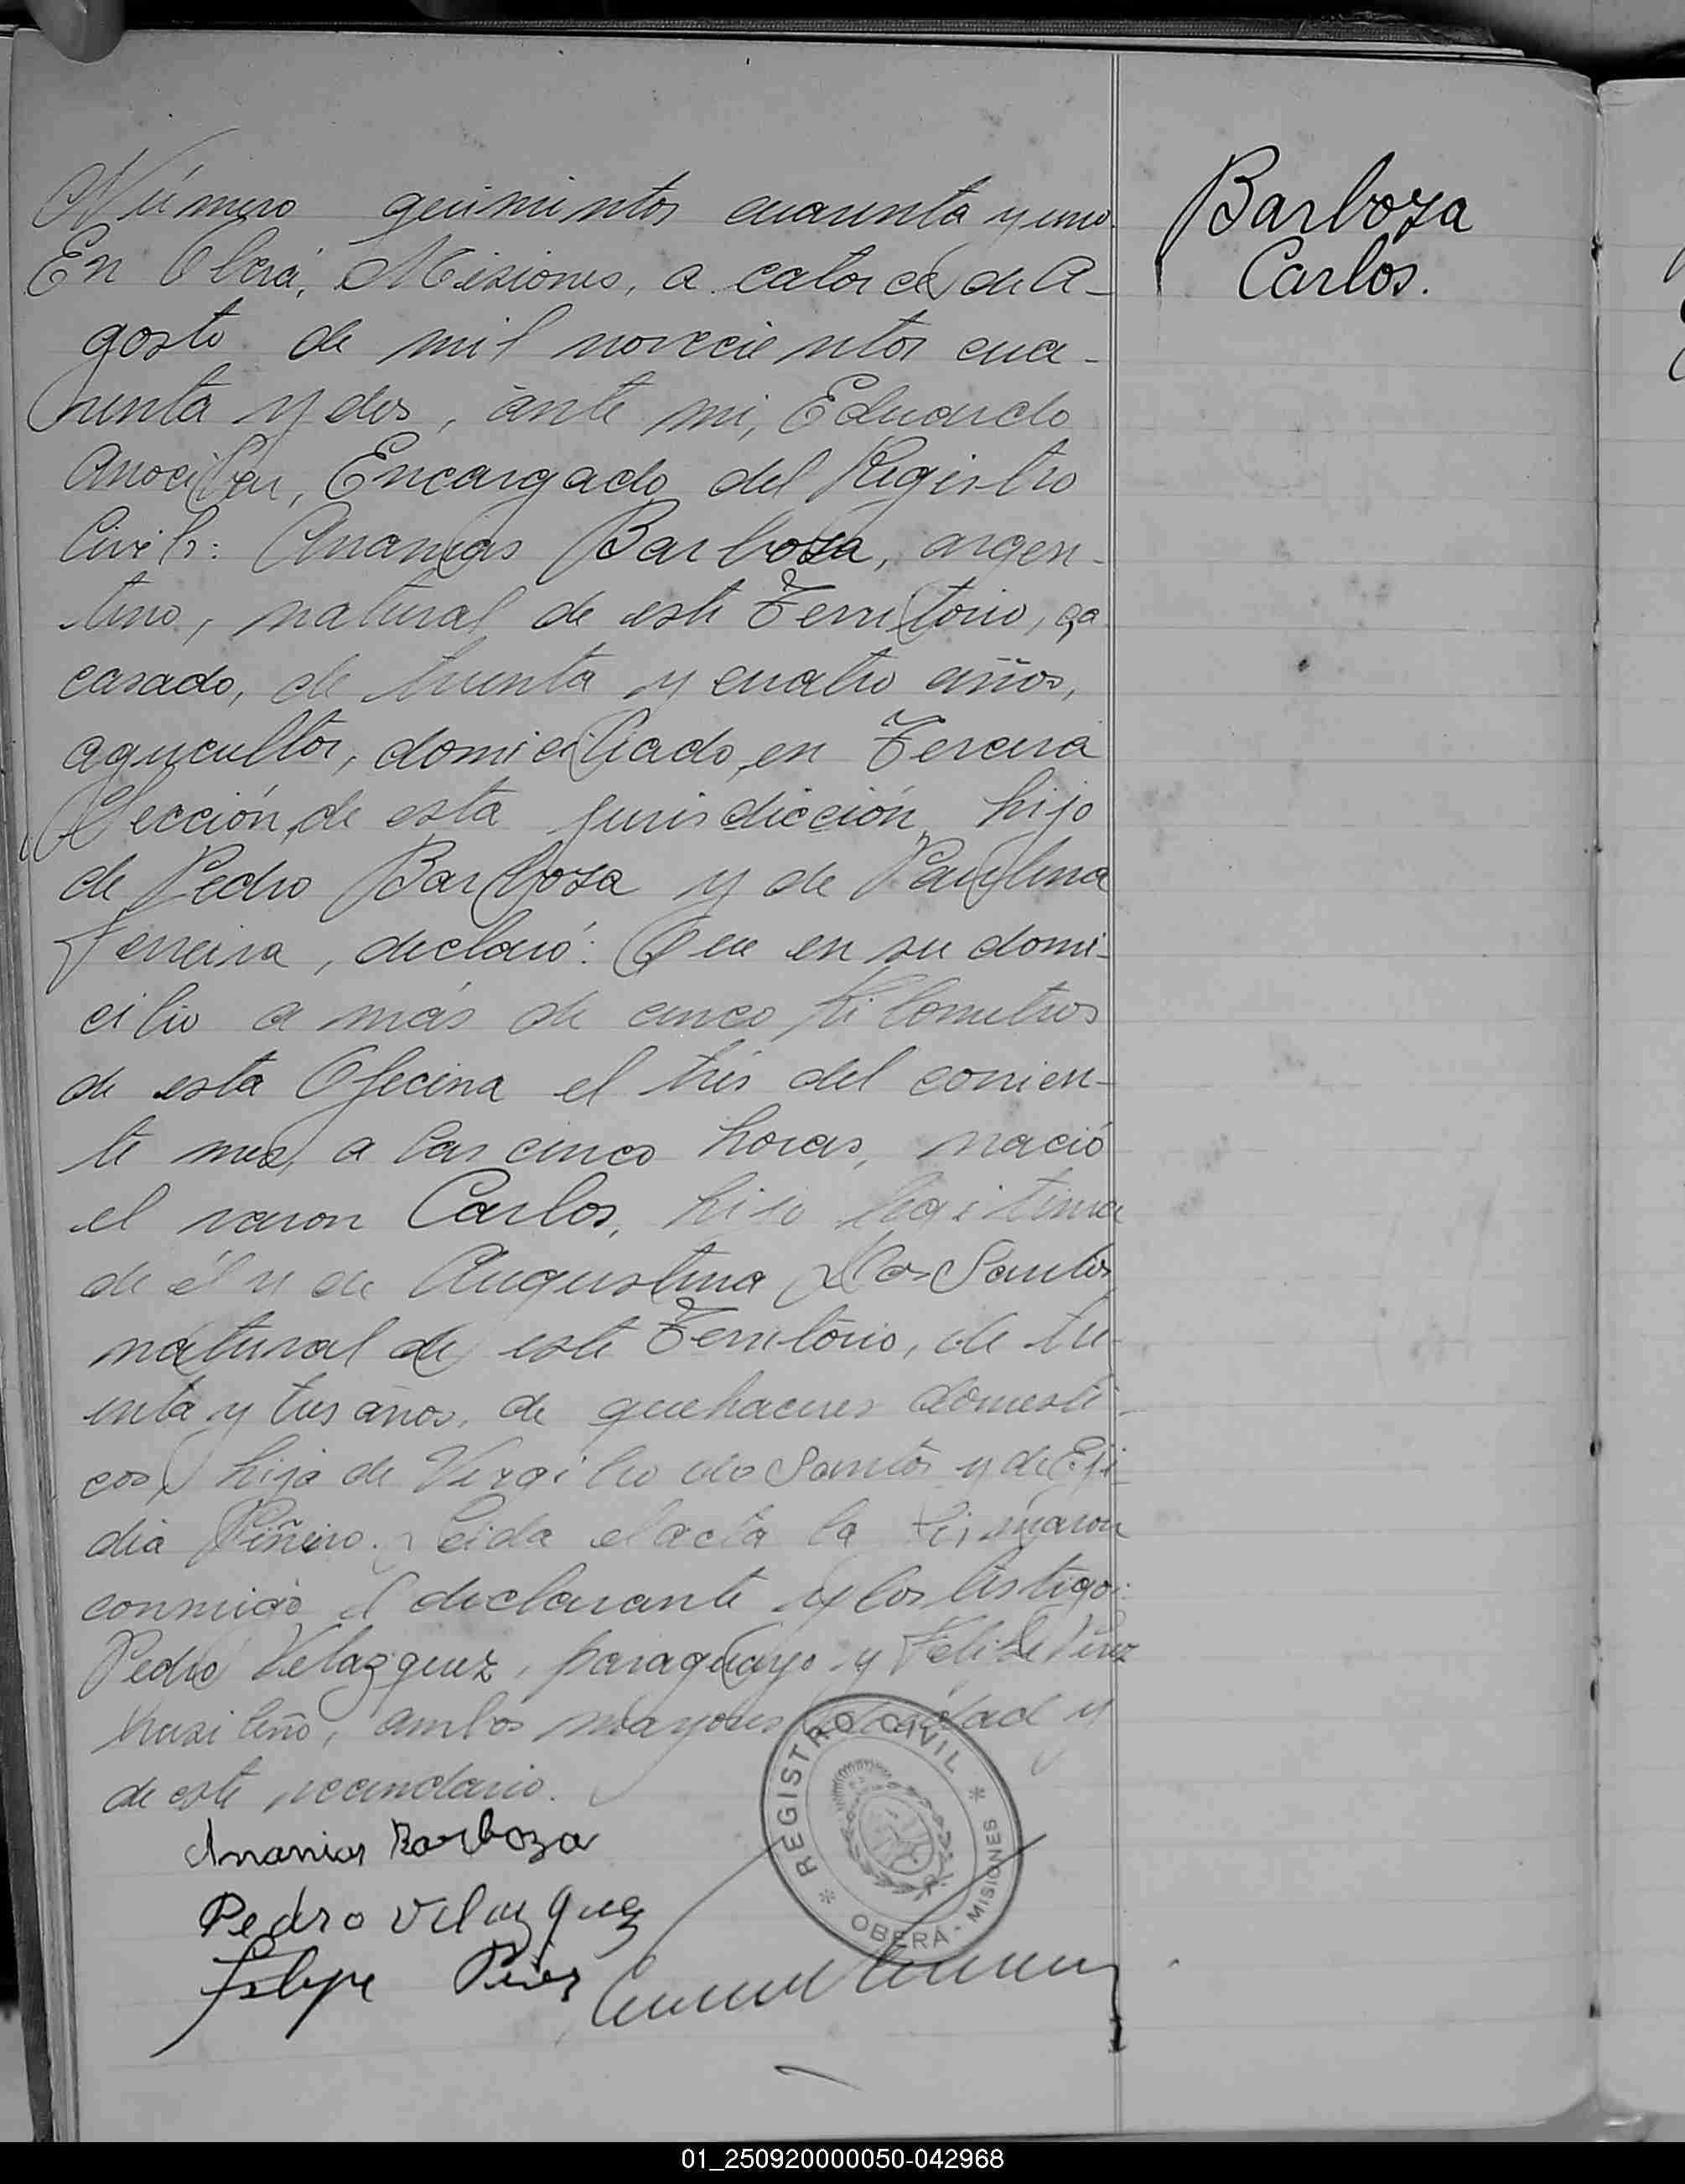 Número quinientos cuarenta y uno.
Barboza
Carlos.
En Oberá, Misiones, a catorce de A-
gosto de mil novecientos cua-
renta y dos, ante mi, Eduardo
Encargado del Registro
Civil: Ananias Barboza, argen-
tino, natural de este Territorio, ca
casado, de treinta y cuatro años,
agricultor, domiciliado, en Tercera
Sección, de esta jurisdicción, hijo
de Pedro Barboza y de Paulina
Ferreira, declaró: Que en su domi-
cilio a más de cinco kilometros
de esta Oficina el tres del corrien-
te mes, a las cinco horas, nació
el varon Carlos, hijo legitimo
de él y de Augustina Dos Santos,
natural de este Territorio, de tre-
inta y tres años, de quehaceres domesti-
cos, hija de Virgilio do Santos y de Eji-
dia Piñeiro. Leida el acta la firmaron
conmigo el declarante y los testigos:
Pedro Velazquez, paraguayo y Felipe Pirez
brasileño, ambos mayores de edad y
de este vecindario.
Ananias Barboza
Pedro Velazquez
Felipe Pires
REGISTRO CIVIL
OBERÁ - MISIONES
01_250920000050-042968